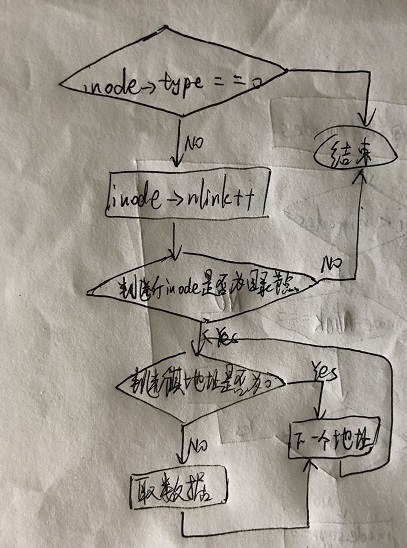 inode→type==0
NO
结束
inode→nlink++
判断inode是否为目录节点
NO
Yes
判断块地址是否为0
Yes
NO
下一个地址
取数据